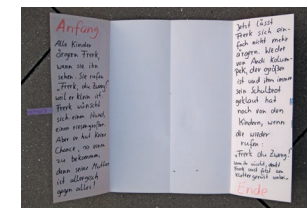 Anfang
Alle Kinder
ärgern Frerk,
wenn sie ihn
sehen. Sie rufen
"Frerk, du Zwerg!"
weil er klein ist.
Frerk wünscht
sich einen Hund,
einen riesengroßen.
Aber er hat keine
Chance, so einen
zu bekommen,
denn seine Mutter
ist allergisch
gegen alles!
Jetzt lässt
Frerk sich ein-
fach nicht mehr
ärgern. Weder
von Andi Kolum-
pek, der größer
ist und ihm immer
sein Schulbrot
geklaut hat
noch von den
Kindern, wenn
die wieder
rufen:
"Frerk du Zwerg!"
Ende